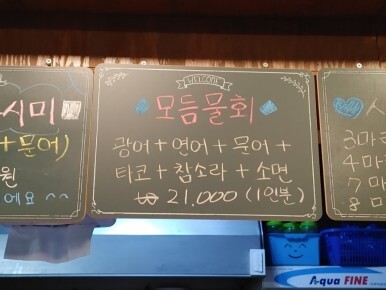 시미
+문어)
원
에요 ^^
WELCOME
모듬물회
광어+연어+문어+
타코+참소라+소면
₩ 21,000 (1인분)
3마
4마
7마
8마
A-qua FINE